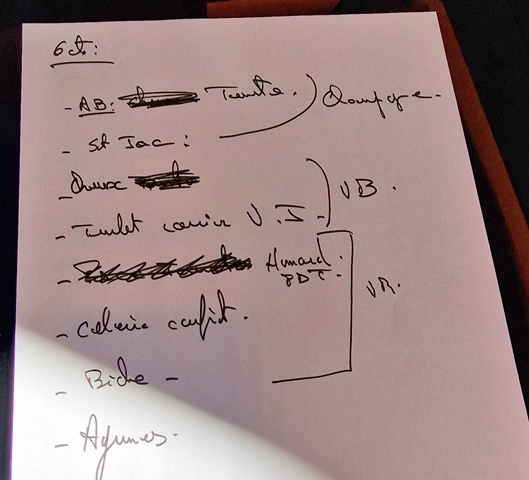 6 cts:
- AB: Truite. Champagne.
- St Jac:
Oursc
- Turbot cavier V.J. VB.
- Homard PDT. VR.
- Celerie confit.
- Biche -
- Agrumes.